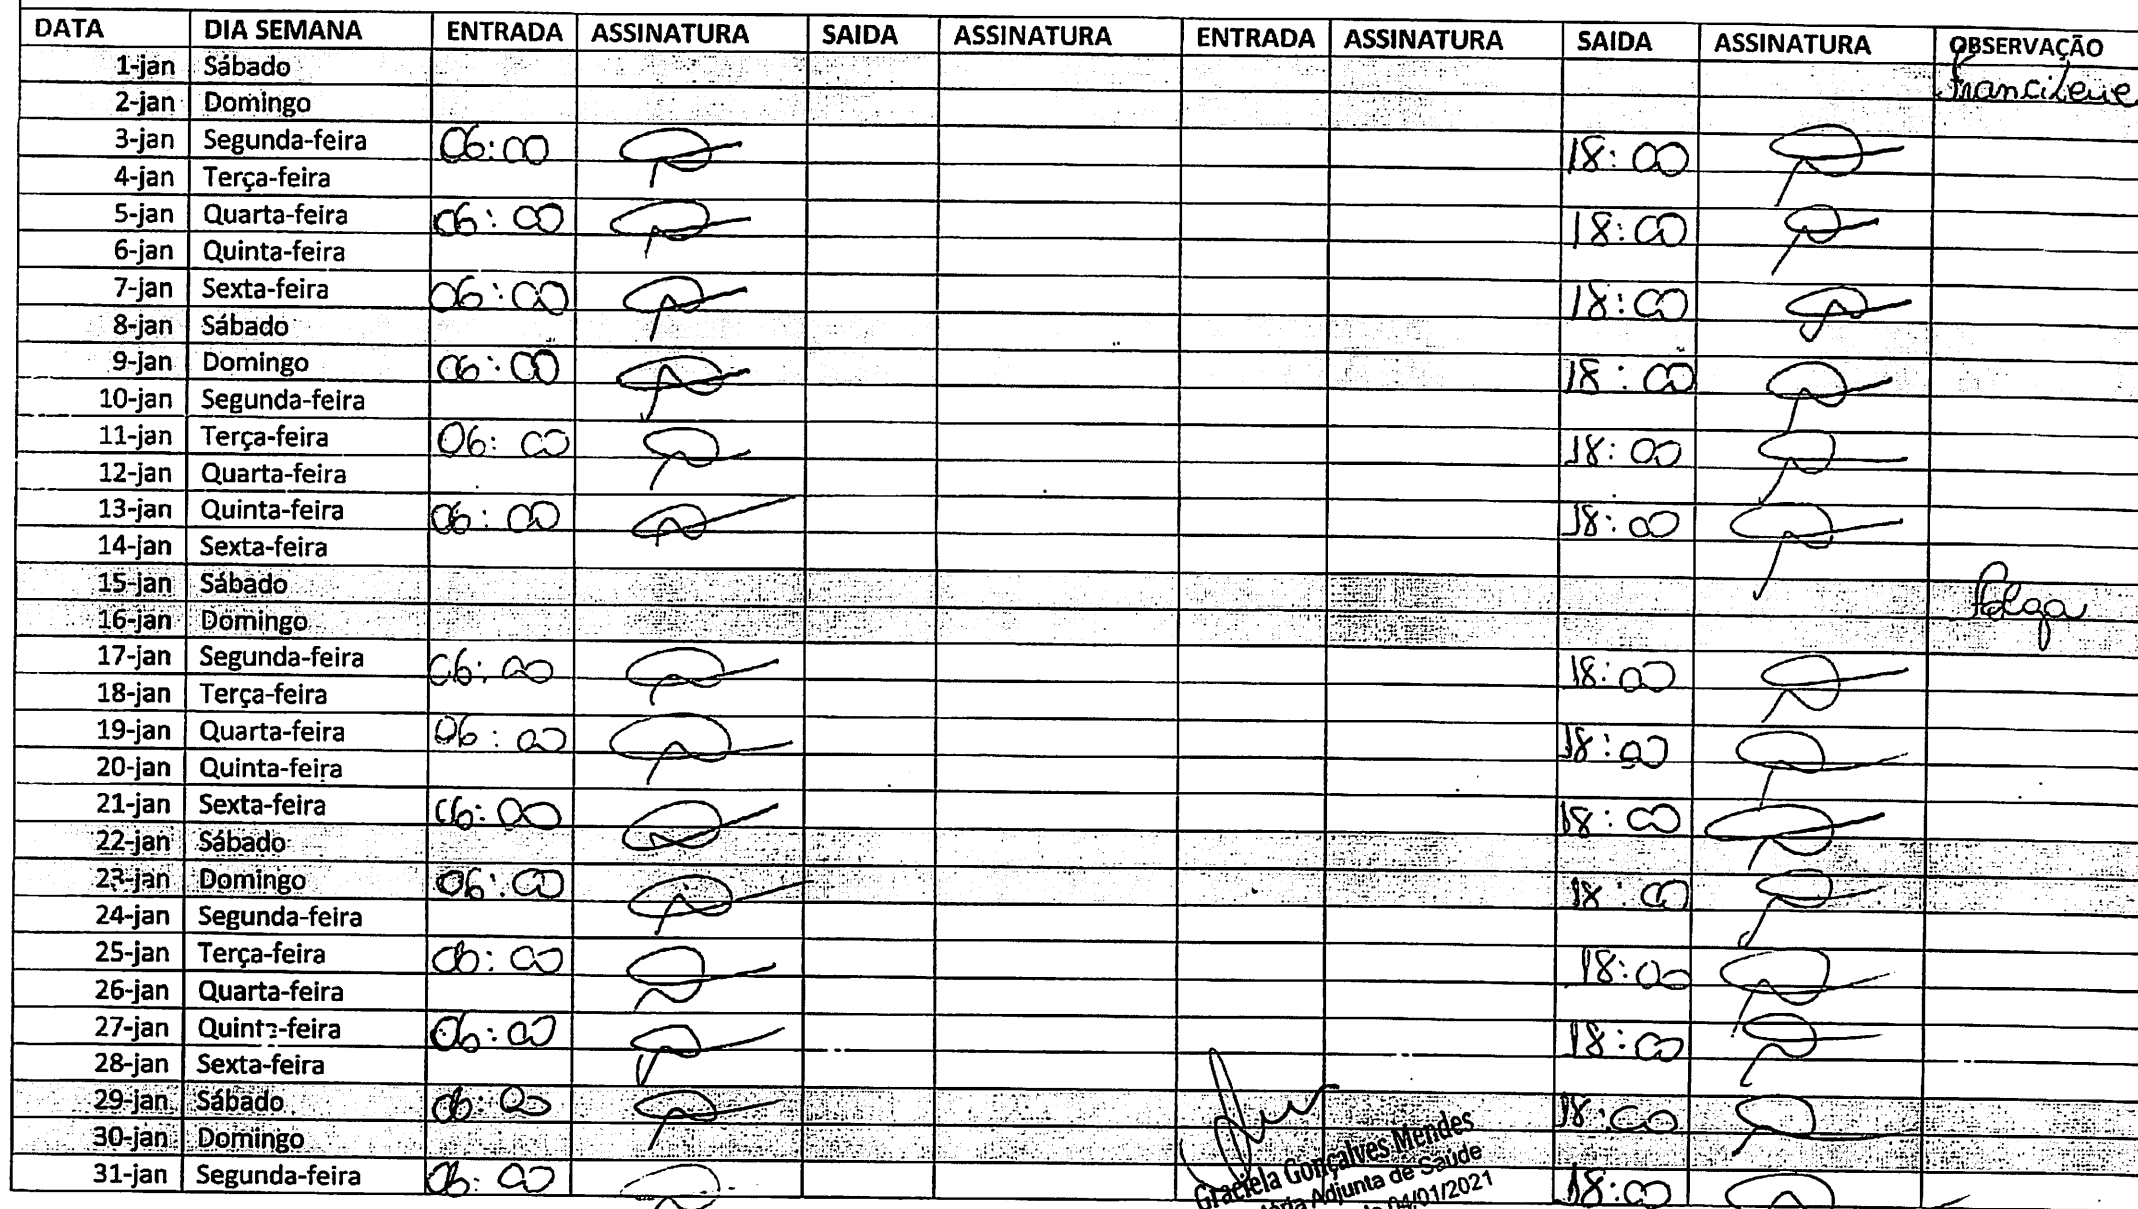 DATA DIA SEMANA ENTRADA ASSINATURA SAIDA ASSINATURA ENTRADA ASSINATURA SAIDA ASSINATURA OBSERVAÇÃO
1-jan Sábado Francilene
2-jan Domingo
3-jan Segunda-feira 06:00 18:00
4-jan Terça-feira
5-jan Quarta-feira 06:00 18:00
6-jan Quinta-feira
7-jan Sexta-feira 06:00 18:00
8-jan Sábado
9-jan Domingo 06:00 18:00
10-jan Segunda-feira
11-jan Terça-feira 06:00 18:00
12-jan Quarta-feira
13-jan Quinta-feira 06:00 18:00
14-jan Sexta-feira
15-jan Sábado Folga
16-jan Domingo
17-jan Segunda-feira 06:00 18:00
18-jan Terça-feira
19-jan Quarta-feira 06:00 18:00
20-jan Quinta-feira
21-jan Sexta-feira 06:00 18:00
22-jan Sábado
23-jan Domingo 06:00 18:00
24-jan Segunda-feira
25-jan Terça-feira 06:00 18:00
26-jan Quarta-feira
27-jan Quinta-feira 06:00 18:00
28-jan Sexta-feira
29-jan Sábado 06:00 18:00
30-jan Domingo
31-jan Segunda-feira 06:00 18:00
Graciela Gonçalves Mendes
Adjunta de Saúde
04/01/2021